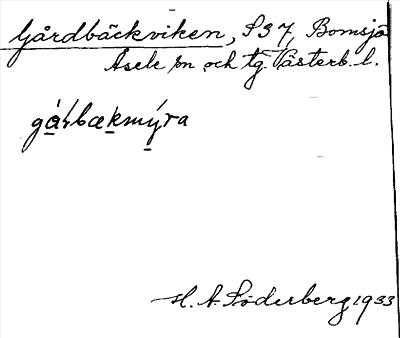 Gårdbäckviken, S37, Bomsjö
Åsele sn och tg. Västerb. l.
gårbækmýra
H. A. Söderberg 1933